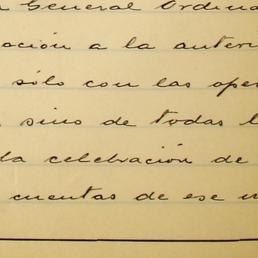 General Ordina
ación a la anteri
sólo con las oper
sino de todas l
la celebración de
cuentas de ese